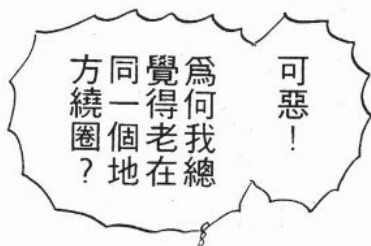 可惡！
爲何我總
覺得老在
同一個地
方繞圈？